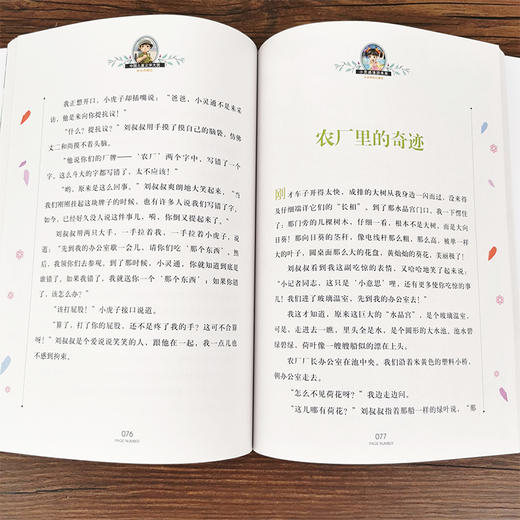 我正想开口，小虎子却插嘴说：“爸爸，小灵通不是来采
访，他是来向你提抗议！”
“什么？提抗议！”刘叔叔用手摸了摸自己的脑袋，仿佛
丈二和尚摸不着头脑。
“他说你们的厂牌——‘农厂’两个字中，写错了一个
字。这么斗大的字都写错了，太不应该！”
“哟，原来是这么回事。”刘叔叔爽朗地大笑起来，“当
我们刚刚挂起这块牌子的时候，也有许多人说我们写错了字。
如今，已经好久没人说这件事儿，喏，你倒又提出来了。”
刘叔叔用两只大手，一手拉着小灵通，一手拉着小虎子，说
道：“先到我的办公室歇一会儿，请你们吃‘那个东西’。然
后，我领你们去参观。到了那时候，小灵通，你就知道到底是
谁错了。如果我错了，我就送你一个‘那个东西’；如果你错
了，该怎么办？”
“该打屁股！”小虎子接口说道。
“算了，打了你的屁股，还不是疼了我的手？这可不合算
呀！”刘叔叔是个爱说说笑笑的人，跟他在一起，我一点儿也
不感到拘束。
076
PAGE NUMBER
农厂里的奇迹
刚才车子开得太快，成排的大树从我身边一闪而过，没来得
及仔细端详它们的“长相”。到了那水晶宫门口，我一下愣住
了：那门旁的几棵树木，仔细一看，根本不是大树，而是大向
日葵！那向日葵的茎秆，像电线杆那么粗，那么高，被单一样
大的叶子，圆桌面那么大的花盘，黄灿灿的葵花，美丽极了！
刘叔叔看到我这副吃惊的表情，又哈哈地笑了起来说：
“小记者同志，这只是‘小意思’哩，还有更多使你吃惊的事
儿！我们进了玻璃温室，先到我的办公室去！”
我这才知道，原来这巨大的“水晶宫”，是个玻璃温室，
可是，走进去一瞧，里头全是水，是个圆形的大水池。池水碧
绿碧绿，荷叶像一艘艘船似的漂在上头。
农厂厂长办公室在池中央。我们沿着米黄色的塑料小桥，
朝办公室走去。
“怎么不见荷花呀？”我边走边问。
“这儿哪有荷花？”刘叔叔指着那船一样的绿叶说，“那
077
PAGE NUMBER